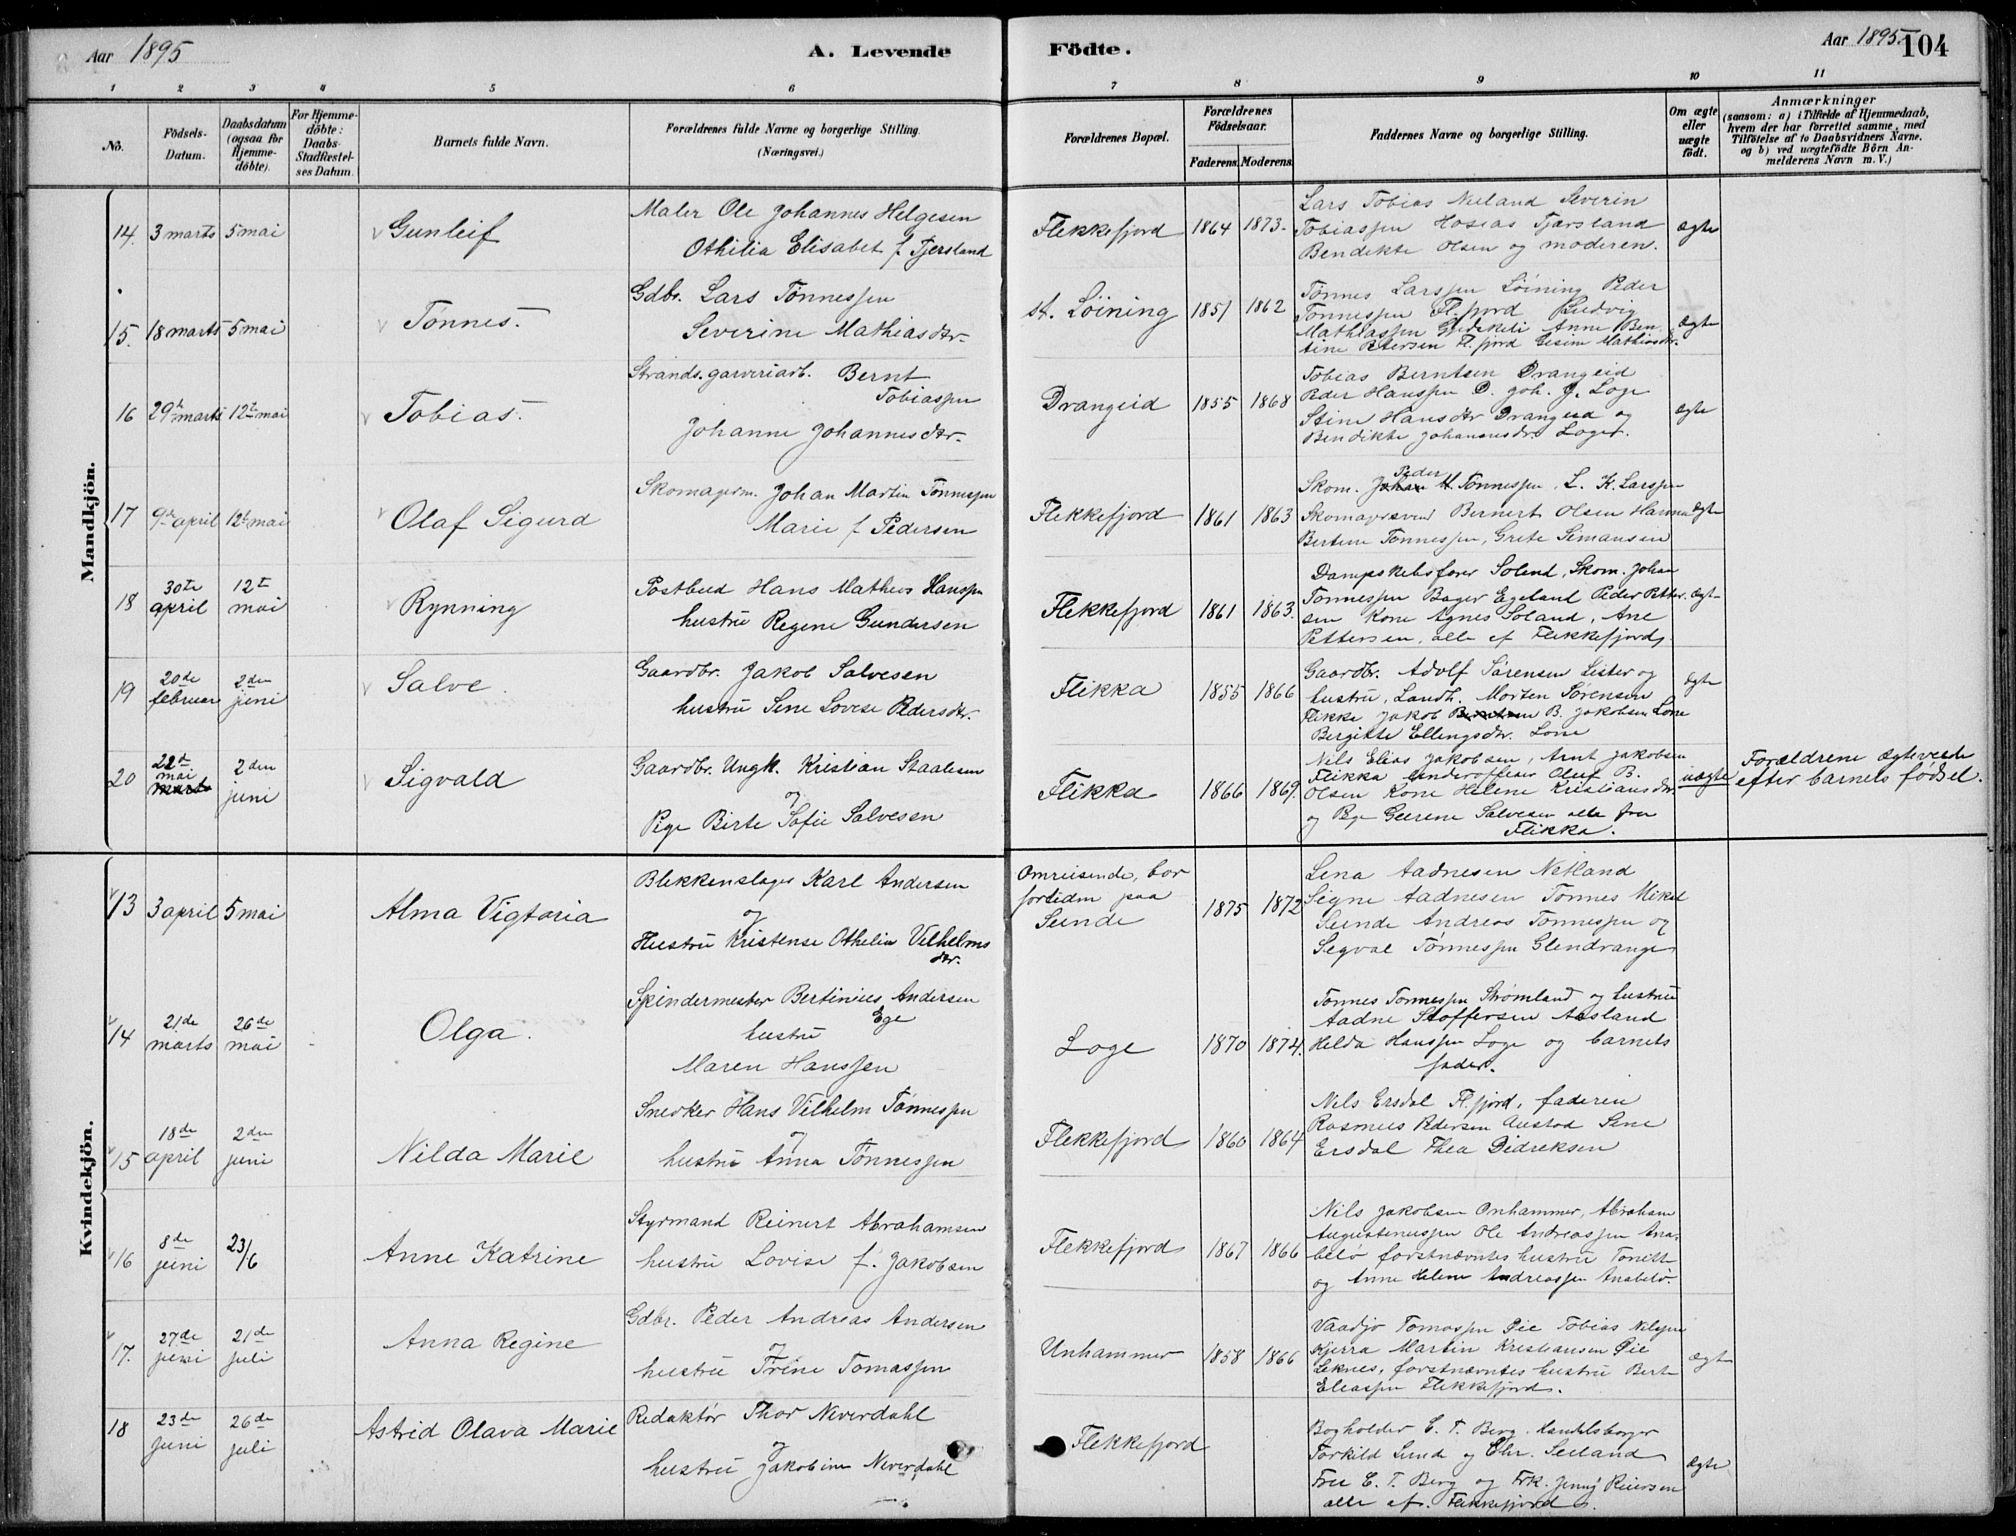 Aar 1895
A. Levende Födte.
Aar 1895. 104
1 2 3 4 5 6 7 8 9 10 11
No.
Födsels-Datum.
Daabsdatum (ogsaa for Hjemme-döbte).
For Hjemme-döbte: Daabs-Stadfæstel-ses Datum.
Barnets fulde Navn.
Forældrenes fulde Navne og borgerlige Stilling.
(Næringsvei.)
Forældrenes Bopæl.
Forældrenes Födselsaar.
Faderens. Moderens.
Faddernes Navne og borgerlige Stilling.
Om ægte eller uægte födt.
Anmærkninger
(saasom: a) i Tilfælde af Hjemmedaab,
hvem der har forrettet samme, med
Tilföielse af to Daabsvidners Navne.
og b) ved uægtefödte Börn An-
melderens Navn m. V.)
Mandkjön.
14. 3 marts 5 mai Gunleif
Maler Ole Johannes Helgesen
Othilia Elisabet f. Tjersland
Flekkefjord 1864 1873.
Lars Tobias Neland Severin
Tobiassen Hoseas Tjørsland
Bendikte Olsen og moderen.
ægte
15. 18 marts 5 mai Tønnes.
Gdbr. Lars Tønnessen
Severine Mathiasdtr.
st. Løining 1851 1862
Tønnes Larssen Løining Peder
Tønnessen Fl.fjord Ludvig
Mathiassen Anne Ben
tine Petersen Fl.fjord Mathiasdtr.
Ægte
16 29de marts 12te mai Tobias.
Strands. garveriarb. Bernt
Tobiassen
Johanne Johannesdtr.
Drangeid 1855 1868
Tobias Berntsen Drangeid
Peder Hanssen D. Joh. J. Loge
Stine Hansdtr Drangeid og
Bendikte Johannesdtr Loge.
ægte
17 9de april 12te mai Olaf Sigurd
Skomagerm. Johan Martin Tønnessen
Marie f. Pedersen
Flekkefjord 1861 1863
Peder
Skom. Johan M. Tønnessen, L. K. Larssen
Skomagersvend Bernert Olsen Hanna
Bertine Tønnessen, Grete Simansen
Ægte
18 30te april 12te mai Rynning
Postbud Hans Mathias Hanssen
hustru Regene Gundersen
Flekkefjord 1861 1863.
Dampskibsfører Soland, Skom. Johan
Tønnessen Bager Egeland Peder Petter
sen Kone Agnes Soland, Ane
Pettersen, alle af Flekkefjord
Ægte
19 20de februar 2den juni Salve.
Gaardbr. Jakob Salvesen
hustru Sene Lovise Pedersdtr.
Flikka 1855 1866
Gaardbr. Adolf Sørensen Lister og
hustru, Landh. Morten Sørensen
Flikke Jakob B. Jakobsen Lone
Bergitte Ellingsdtr. Lone
Ægte
20 22de mai marts 2den juni Sigvald
Gaardbr. Ungk. Kristian Staalesen
og
Pige Birte Sofie Salvesen
Flikka 1866 1869.
Nils Elias Jakobsen, Arnt Jakobsen
Flikka Underofficer Oluf B.
Olsen Kone Helene Kristiansdtr.
og Pige Geerene Salvesen alle fra
Flikka.
uægte
Forældrene ægteviede
efter barnets fødsel.
Kvindekjön.
13 3 april 5 mai Alma Vigtoria
Blekkenslager Karl Andersen
og
Hustru Kristense Othelia Vilhelms
dtr.
Omreisende, bor
fortiden paa
Sunde
1875 1872
Lena Aadnesen Netland
Signe Aadnesen Tønnes Mikal
Sunde Andreas Tønnessen og
Segval Tønnessen Glendrange
14 21de marts 26de mai Olga.
Skindermester Bertinius Andersen
Ege
hustru
Maren Hanssen
Loge 1870 1874.
Tønnes Tønnessen Strømland og hustru
Aadne Stoffersen Aasland
Helda Hanssen Loge og barnets
fader.
15 18de april 2den juni Nilda Marie
Snedker Hans Vilhelm Tønnessen
og
hustru Anna Tønnessen
Flekkefjord 1860 1864
Nils Ersdal Fl.fjord, faderen
Rasmus Pedersen Austad Sine
Ersdal Thea Didreksen
16 8de juni 23/6 Anne Katrine
Styrmand Reinert Abrahamsen
hustru Lovise f. Jakobsen
Flekkefjord 1867 1866
Nils Jakobsen Onhammer, Abraham
Augustinussen Ole Andreassen Ana
belø førstnævntes hustru Tonitte
og Anne Helene Andreassen Anabelø.
17. 27de juni 21de juli Anna Regine
Gdbr. Peder Andreas Andersen
og
hustru Trine Tomassen
Unhammer 1858 1866
Vaadjø Tomassen Øie Tobias Nilssen
Kjerra Martin Kristiansen Øie
Leknes, førstnævntes hustru Berte
Eliassen Flekkefjord.
ægt
18 23de juni 26de juli Astrid Olava Marie
Redaktør Thor Neverdahl
og
hustru Jakobine Neverdahl
Flekkefjord
Bogholder E. T. Berg. Handelsborger
Torkild Lund og Chr. Seland
Fru E. T. Berg og Frk. Jenny Reiersen
alle af Flekkefjord.
Ægte